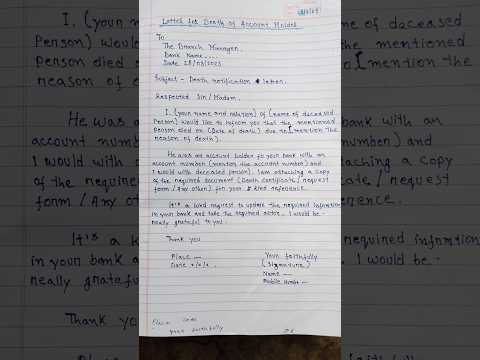 Letter for Death of Account Holder
To
The Branch Manager
Bank Name ....
Date 28/03/2025
Subject - Death notification letter.
Respected Sir/Madam.
I, (your name and relation) of (name of deceased
Person) would like to inform you that the mentioned
Person died on (Date of death) due to [mention the
reason of death).
He was an account holder for your bank with an
account number (mention the account number) and
I would with deceased person). I am attaching a copy
of the required document (Death certificate / request
form / Any other) for your kind reference.
It is a kind request to update the required information
in your bank and take the required action. I would be
really grateful to you.
Thank you
Place —
Date */*/*
Your faithfully
(Signature)
Name —
Mobile Number -
Place
your faithfully